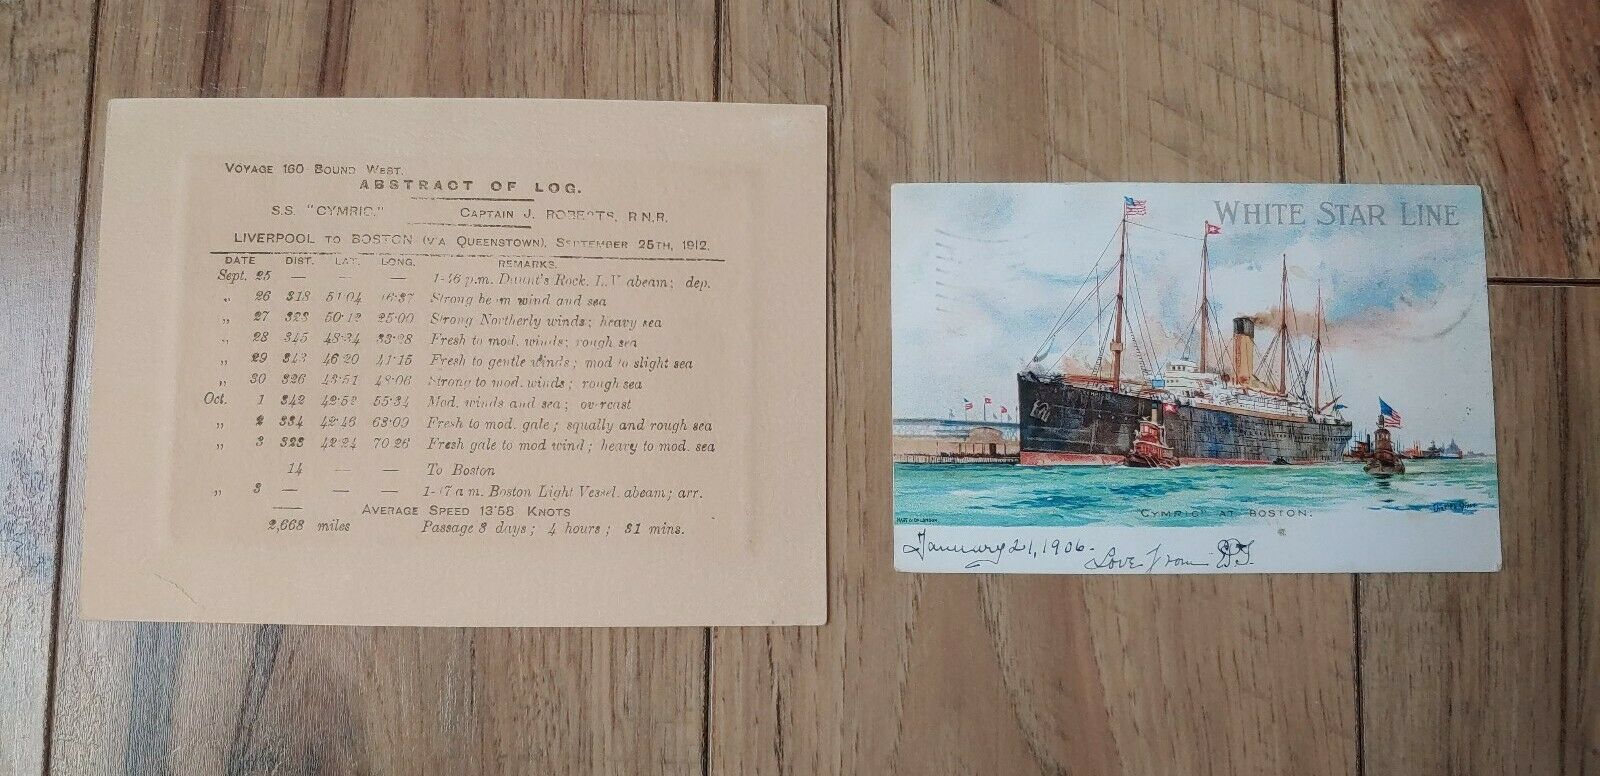 VOYAGE 160 BOUND WEST.
ABSTRACT OF LOG.
S.S. "CYMRIC." CAPTAIN J. ROBERTS, R.N.R.
LIVERPOOL TO BOSTON (VIA QUEENSTOWN), SEPTEMBER 25TH, 1912.
DATE DIST. LAT. LONG. REMARKS.
Sept. 25 — — — 1-46 p.m. Daunt's Rock. L.V abeam; dep.
„ 26 318 51·04 16·37 Strong beam wind and sea
„ 27 323 50·12 25·00 Strong Northerly winds; heavy sea
„ 28 345 48·34 33·28 Fresh to mod. winds; rough sea
„ 29 343 46 20 41·15 Fresh to gentle winds; mod to slight sea
„ 30 326 43·51 48·06 Strong to mod. winds; rough sea
Oct. 1 342 42·52 55·34 Mod. winds and sea; overcast
„ 2 334 42·46 63·09 Fresh to mod. gale; squally and rough sea
„ 3 323 42·24 70 26 Fresh gale to mod wind; heavy to mod. sea
14 — — To Boston
„ 3 — — — 1-17 a.m. Boston Light Vessel. abeam; arr.
AVERAGE SPEED 13·58 KNOTS
2,668 miles Passage 8 days; 4 hours; 31 mins.
WHITE STAR LINE
"CYMRIC" AT BOSTON.
January 21, 1906.
Love from